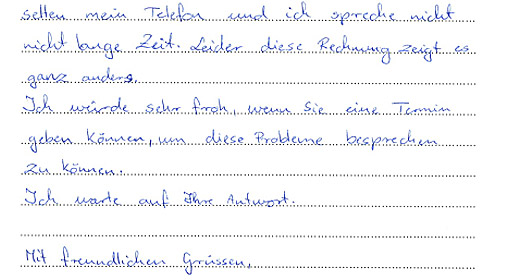 selten mein Telefon und ich spreche nicht
nicht lange Zeit. Leider diese Rechnung zeigt es
ganz anders.
Ich würde sehr froh, wenn Sie eine Termin
geben können, um diese Probleme besprechen
zu können.
Ich warte auf Ihre Antwort.
Mit freundlichen Grüssen,